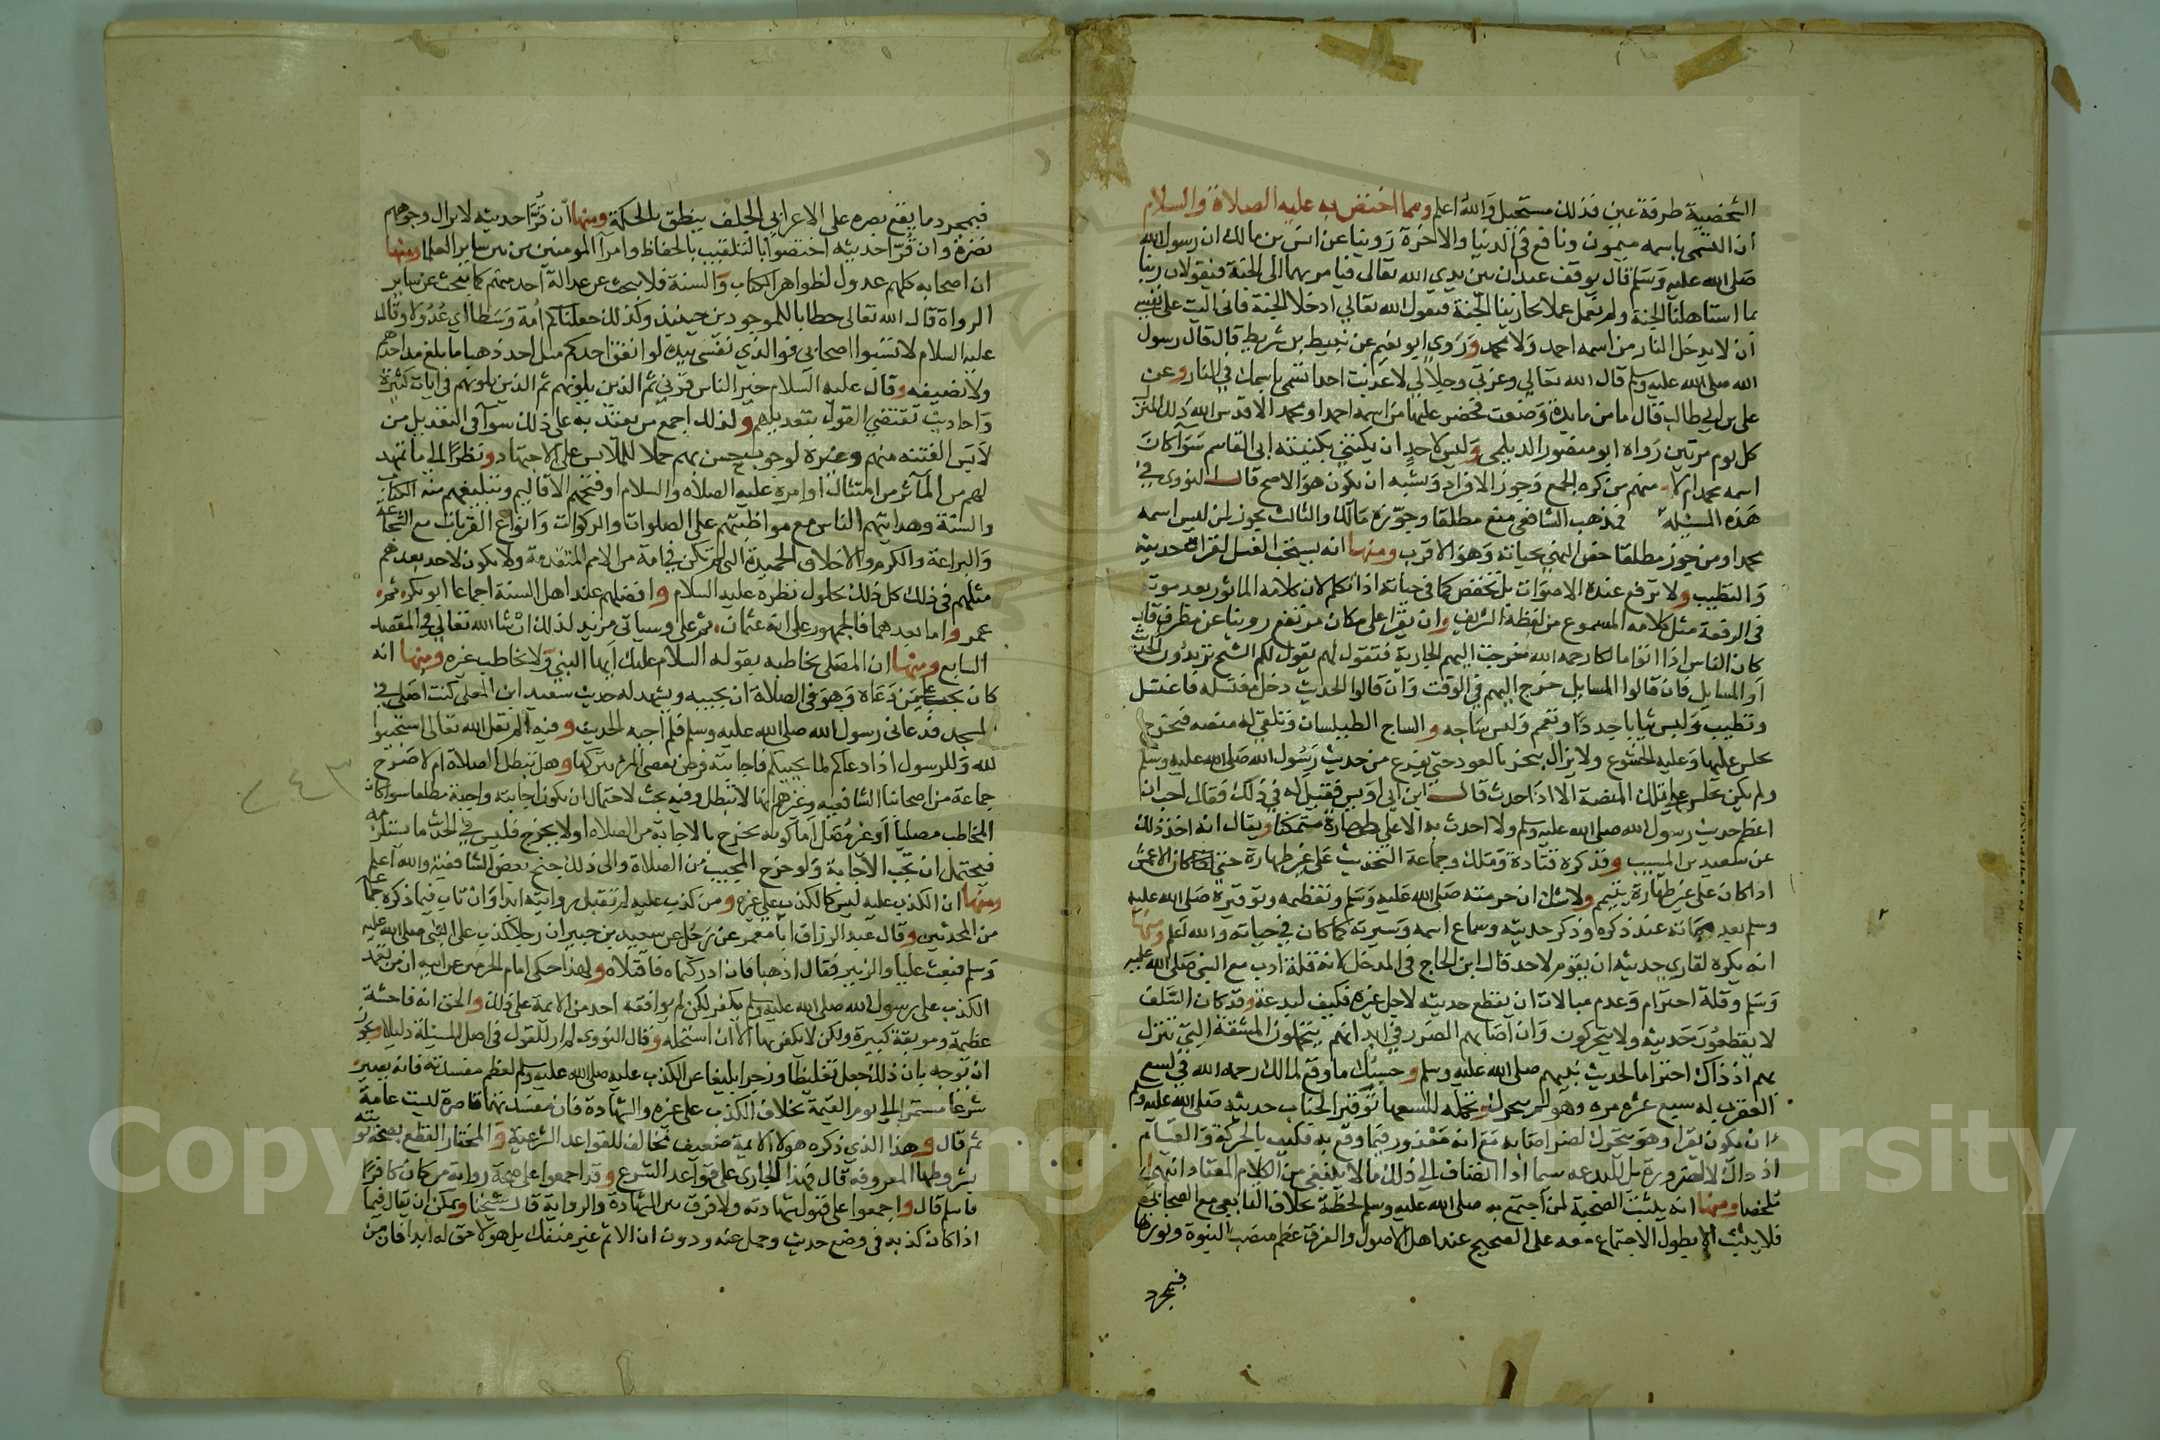 الشخصية طرفة عين فذلك مستحيل والله اعلم ومما اختص به عليه الصلاة والسلام
أن التسمى باسمه ميمون ونافع في الدنيا والاخرة روينا عن انس بن مالك ان رسول الله
صلى الله عليه وسلم قال يوقف عبدان بين يدي الله تعالى فيامر بهما الى الجنة فيقولان ربنا
بما استاهلنا الجنة ولم نعمل عملا يجازينا الجنة فيقول الله تعالى ادخلا الجنة فانى اليت على نفسى
أن لا يدخل النار من اسمه احمد ولا محمد وروى ابو نعيم عن نبيط بن شريط قال قال رسول
الله صلى الله عليه وسلم قال الله تعالي وعزتي وجلالي لا عذبت احدا تسمى باسمك في النار وعن
على بن ابي طالب قال ما من مايدة وضعت فحضر عليها من اسمه احمد او محمد الا قدس الله ذلك المنزل
كل يوم مرتين رواه ابو منصور الديلمى وليس لاحد ان يكتني بكنيته ابى القاسم سوا كان
اسمه محمد ام لا ومنهم من كره الجمع وجوز الافراد ويشبه ان يكون هو الاصح قال النووى في
هذه المسئلة فمذهب الشافعى منع مطلقا وجوزه مالك والثالث يجوز لمن ليس اسمه
محمدا ومن جوز مطلقا خص النهى بحياته وهو الاقرب ومنها انه يستحب الغسل لقراة حديثه
والتطيب ولا ترفع عنده الاصوات بل تخفض كما في حياته اذا تكلم لان كلامه الماثور بعد موته
في الرفعة مثل كلامه المسموع من لفظه الشريف وان يقرا على مكان مرتفع روينا عن مطرف قال
كان الناس اذا اتوا مالكا رحمه الله خرجت اليهم الجارية فتقول لهم يقول لكم الشيخ تريدون الحديث
أو المسايل فان قالوا المسايل خرج اليهم في الوقت وان قالوا الحديث دخل مغتسله فاغتسل
وتطيب ولبس ثيابا جددا وتعمم ولبس ساجه والساج الطيلسان وتلقى له منصه فيخرج
يجلس عليها وعليه الخشوع ولا يزال يبخر بالعود حتى يفرغ من حديث رسول الله صلى الله عليه وسلم
ولم يكن يجلس على تلك المنصة الا اذا حدث قال ابن ابى اويس فقيل له في ذلك فقال احب ان
اعظم حديث رسول الله صلى الله عليه وسلم ولا احدث به الا على طهارة متمكنا ويقال انه اخذ ذلك
عن سعيد بن المسيب وقد كره قتادة ومالك وجماعة التحديث على غير طهارة حتى كان الاعمش
اذا كان على غير طهارة يتيمم ولا شك ان حرمته صلى الله عليه وسلم وتعظيمه وتوقيره صلى الله عليه
وسلم بعد مماته عند ذكره وذكر حديثه وسماع اسمه وسيرته كما كان في حياته والله اعلم ومنها
انه يكره لقارى حديثه ان يقوم لاحد قال ابن الحاج فى المدخل لانه قلة ادب مع النبي صلى الله عليه
وسلم وقلة احترام وعدم مبالاة ان يقطع حديثه لاجل غيره فكيف لبدعة وقد كان السلف
لا يقطعون حديثه ولا يتحركون وان اصابهم الضرر في ابدانهم يتحملون المشقة التي تنزل
بهم اذ ذاك احتراما لحديث نبيهم صلى الله عليه وسلم وحسبك ما وقع لمالك رحمه الله في لسع
العقرب له سبع عشرة مرة وهو لم يتحرك وتحمله للسعها توقيرا لجناب حديثه صلى الله عليه وسلم
ان يكون يقرا وهو يتحرك لضر اصابه مع انه معذور فيما وقع به فكيف بالحركة والقيام
اذ ذاك لا لضرورة بل للبدعه سيما اذا انضاف الى ذلك ما لا ينبغي من الكلام المعتاد انتهى
ملخصا ومنها انه يثبت الصحبة لمن اجتمع به صلى الله عليه وسلم لحظة بخلاف التابعى مع الصحابى
فلا يثبت الا بطول الاجتماع معه على الصحيح عند اهل الاصول والفرق عظم منصب النبوة ونورها
فبمجرد
فبمجرد ما يقع بصره على الاعرابي الجلف ينطق بالحكمة ومنها أن قرا حديثه لا يزال وجوههم
نضرة وان قرا حديثه اختصوا بالتلقيب بالحفاظ وامرا المومنين من بين ساير العلما ومنها
ان اصحابه كلهم عدول لظواهر الكتاب والسنة فلا يبحث عن عدالة احد منهم كما يبحث عن ساير
الرواة قال الله تعالى خطابا للموجودين حينئذ وكذلك جعلناكم امة وسطا اي عدولا وقال
عليه السلام لا تسبوا اصحابى فوالذي نفسى بيده لو انفق احدكم مثل احد ذهبا ما بلغ مد احدهم
ولا نصيفه وقال عليه السلام خير الناس قرني ثم الذين يلونهم ثم الذين يلونهم فى ايات كثيرة
واحاديث تقتضي القول بتعديلهم ولذلك اجمع من يعتد به على ذلك سوا في التعديل من
لابس الفتنه منهم وغيره لوجوب حسن بهم حملا للملابس على الاجتهاد ونظرا الى ما تمهد
لهم من المآثر من امتثال اوامره عليه الصلاه والسلام وفتحهم الاقاليم وتبليغهم عنه الكتاب
والسنة وهدايتهم الناس مع مواظبتهم على الصلوات والزكوات وانواع القربات مع الشجاعة
والبراعة والكرم والاخلاق الحميدة التى لم تكن في امة من الامم المتقدمة ولا يكون لاحد بعدهم
مثلهم في ذلك كل ذلك بحلول نظره عليه السلام وافضلهم عند اهل السنة اجماعا ابو بكر ثم
عمر واما بعدهما فالجمهور على انه عثمان ثم على وسياتى مزيد لذلك ان شا الله تعالى في المقصد
السابع ومنها ان المصلى يخاطبه بقوله السلام عليك أيها النبي ولا يخاطب غيره ومنها انه
كان يجب على من دعاه وهو في الصلاة ان يجيبه ويشهد له حديث سعيد ابن المعلى كنت اصلى في
المسجد فدعانى رسول الله صلى الله عليه وسلم فلم أجبه الحديث وفيه الم يقل الله تعالى استجيبوا
لله وللرسول اذا دعاكم لما يحييكم فاجابته فرض يعصى المرء بتركها وهل تبطل الصلاة ام لا صرح
جماعة من اصحابنا الشافعية وغيرهم انها لا تبطل وفيه بحث لاحتمال ان تكون اجابته واجبة مطلقا سوا كان
المخاطب مصليا أو غير مصل اما كونه يخرج بالاجابة من الصلاه او لا يخرج فليس في الحديث ما يستلزمه
فيحتمل ان تجب الاجابة ولو خرج المجيب من الصلاة والى ذلك جنح بعض الشافعية والله اعلم
ومنها ان الكذب عليه ليس كالكذب على غيره ومن كذب عليه لم تقبل روايته ابدا وان تاب فيما ذكره جماعة
من المحدثين وقال عبد الرزاق ابا معمر عن رجل عن سعيد بن جبير ان رجلا كذب على النبي صلى الله عليه
وسلم فبعث عليا والزبير فقال اذهبا فان ادركتماه فاقتلاه ولهذا حكى امام الحرمين عن ابيه ان من تعمد
الكذب على رسول الله صلى الله عليه وسلم يكفر لكن لم يوافقه احد من الائمة على ذلك والحق انه فاحشة
عظيمة وموبقة كبيرة ولكن لا يكفر بها الا ان استحله وقال النووى لم ار للقول فى اصل المسئلة دليلا ويجوز
ان يوجه بان ذلك جعل تغليظا وزجرا بليغا عن الكذب عليه صلى الله عليه وسلم لعظم مفسدته فانه يصير
شرعا مستمرا الى يوم القيمة بخلاف الكذب على غيره والشهادة فان مفسدتها قاصرة ليست عامة
ثم قال وهذا الذي ذكره هولا الائمة ضعيف مخالف للقواعد الشرعية والمختار القطع بصحة توبته
بشروطها المعروفه قال فهذا الجارى على قواعد الشرع وقد اجمعوا على صحة رواية من كان كافرا
فاسلم قال واجمعوا على قبول شهادته ولا فرق بين الشهادة والرواية قال شيخنا ويمكن ان يقال فيما
اذا كان كذبه في وضع حديث وحمل عنه ودون ان الاثم غير منفك بل هو لاحق له ابدا فان من
٢٤٣
Copyright © King Saud University